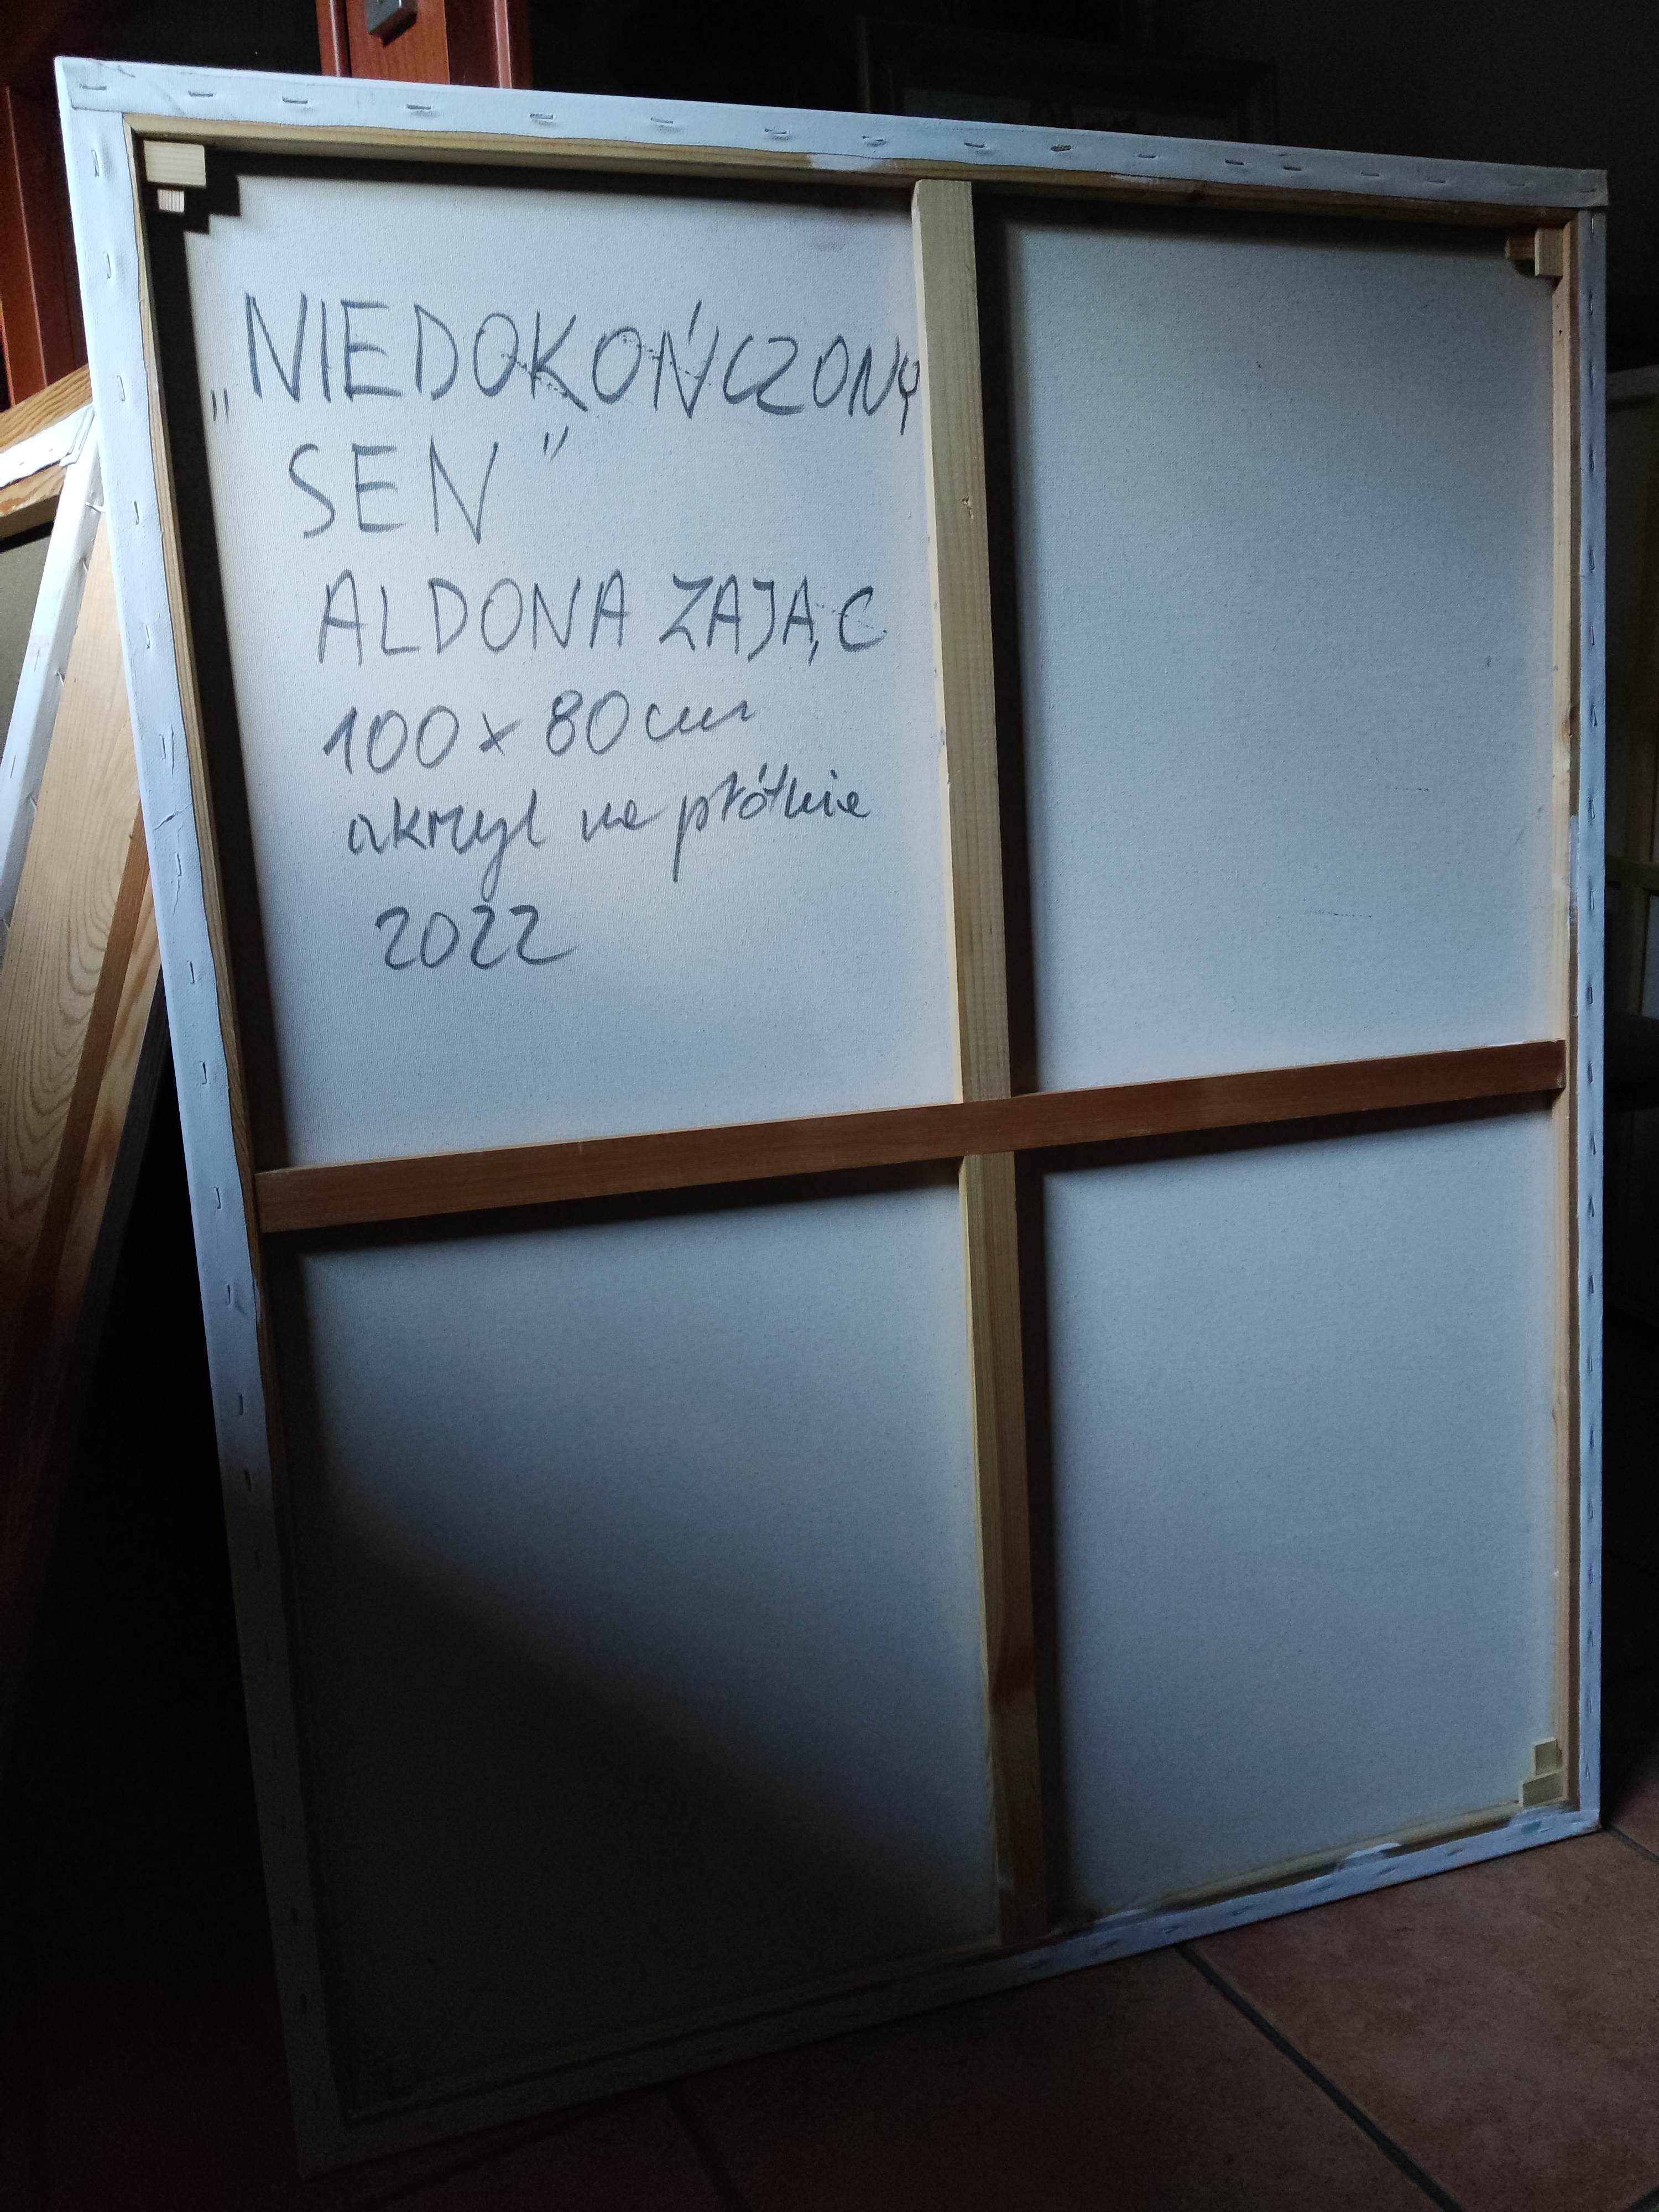 „NIEDOKOŃCZONY
SEN"
ALDONA ZAJĄC
100 x 80 cm
akryl na płótnie
2022